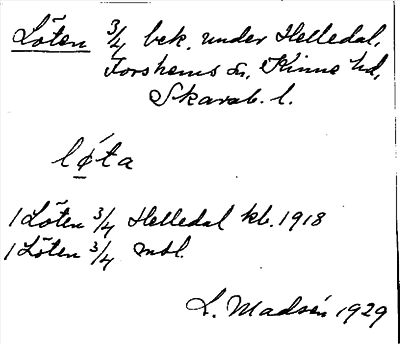 Löten 3/4 bek. under Helledal,
Forshems sn, Kinne hd,
Skarab. l.
lǿta
1 Löten 3/4 Helledal kb. 1918
1 Löten 3/4 mbl.
L. Madsén 1929